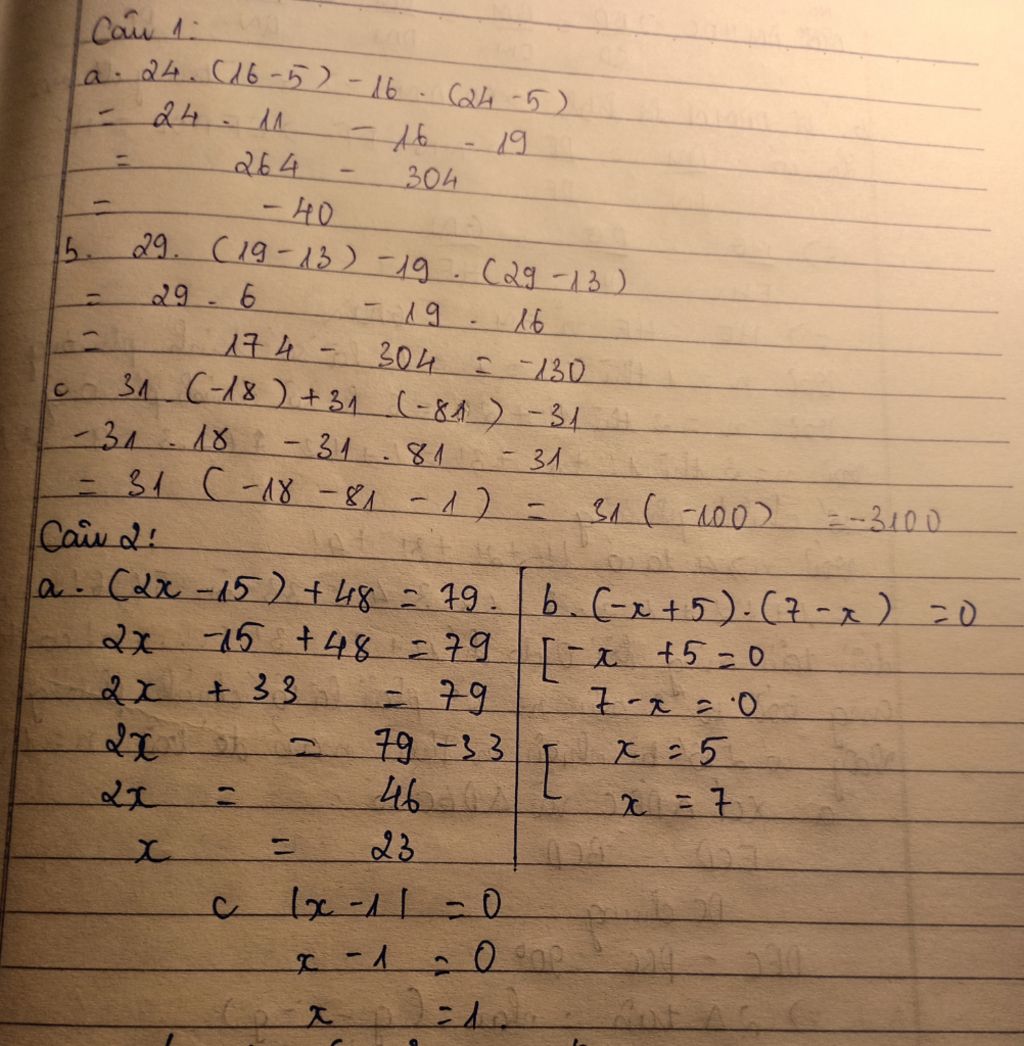 Câu 1:
a. 24. (16-5) -16 . (24-5)
= 24 . 11 - 16 . 19
= 264 - 304
= -40
b. 29. (19-13) -19 . (29-13)
= 29 . 6 - 19 . 16
= 174 - 304 = -130
c 31 . (-18) + 31 . (-81) -31
-31 . 18 - 31 . 81 - 31
= 31 ( -18 - 81 - 1 ) = 31 ( -100) = -3100
Câu 2:
a. (2x -15) + 48 = 79.
2x -15 +48 = 79
2x + 33 = 79
2x = 79 - 33
2x = 46
x = 23
b. (-x +5) . (7 - x) = 0
[ -x +5 = 0
7 - x = 0
[ x = 5
x = 7
c |x -1| = 0
x - 1 = 0
x = 1.